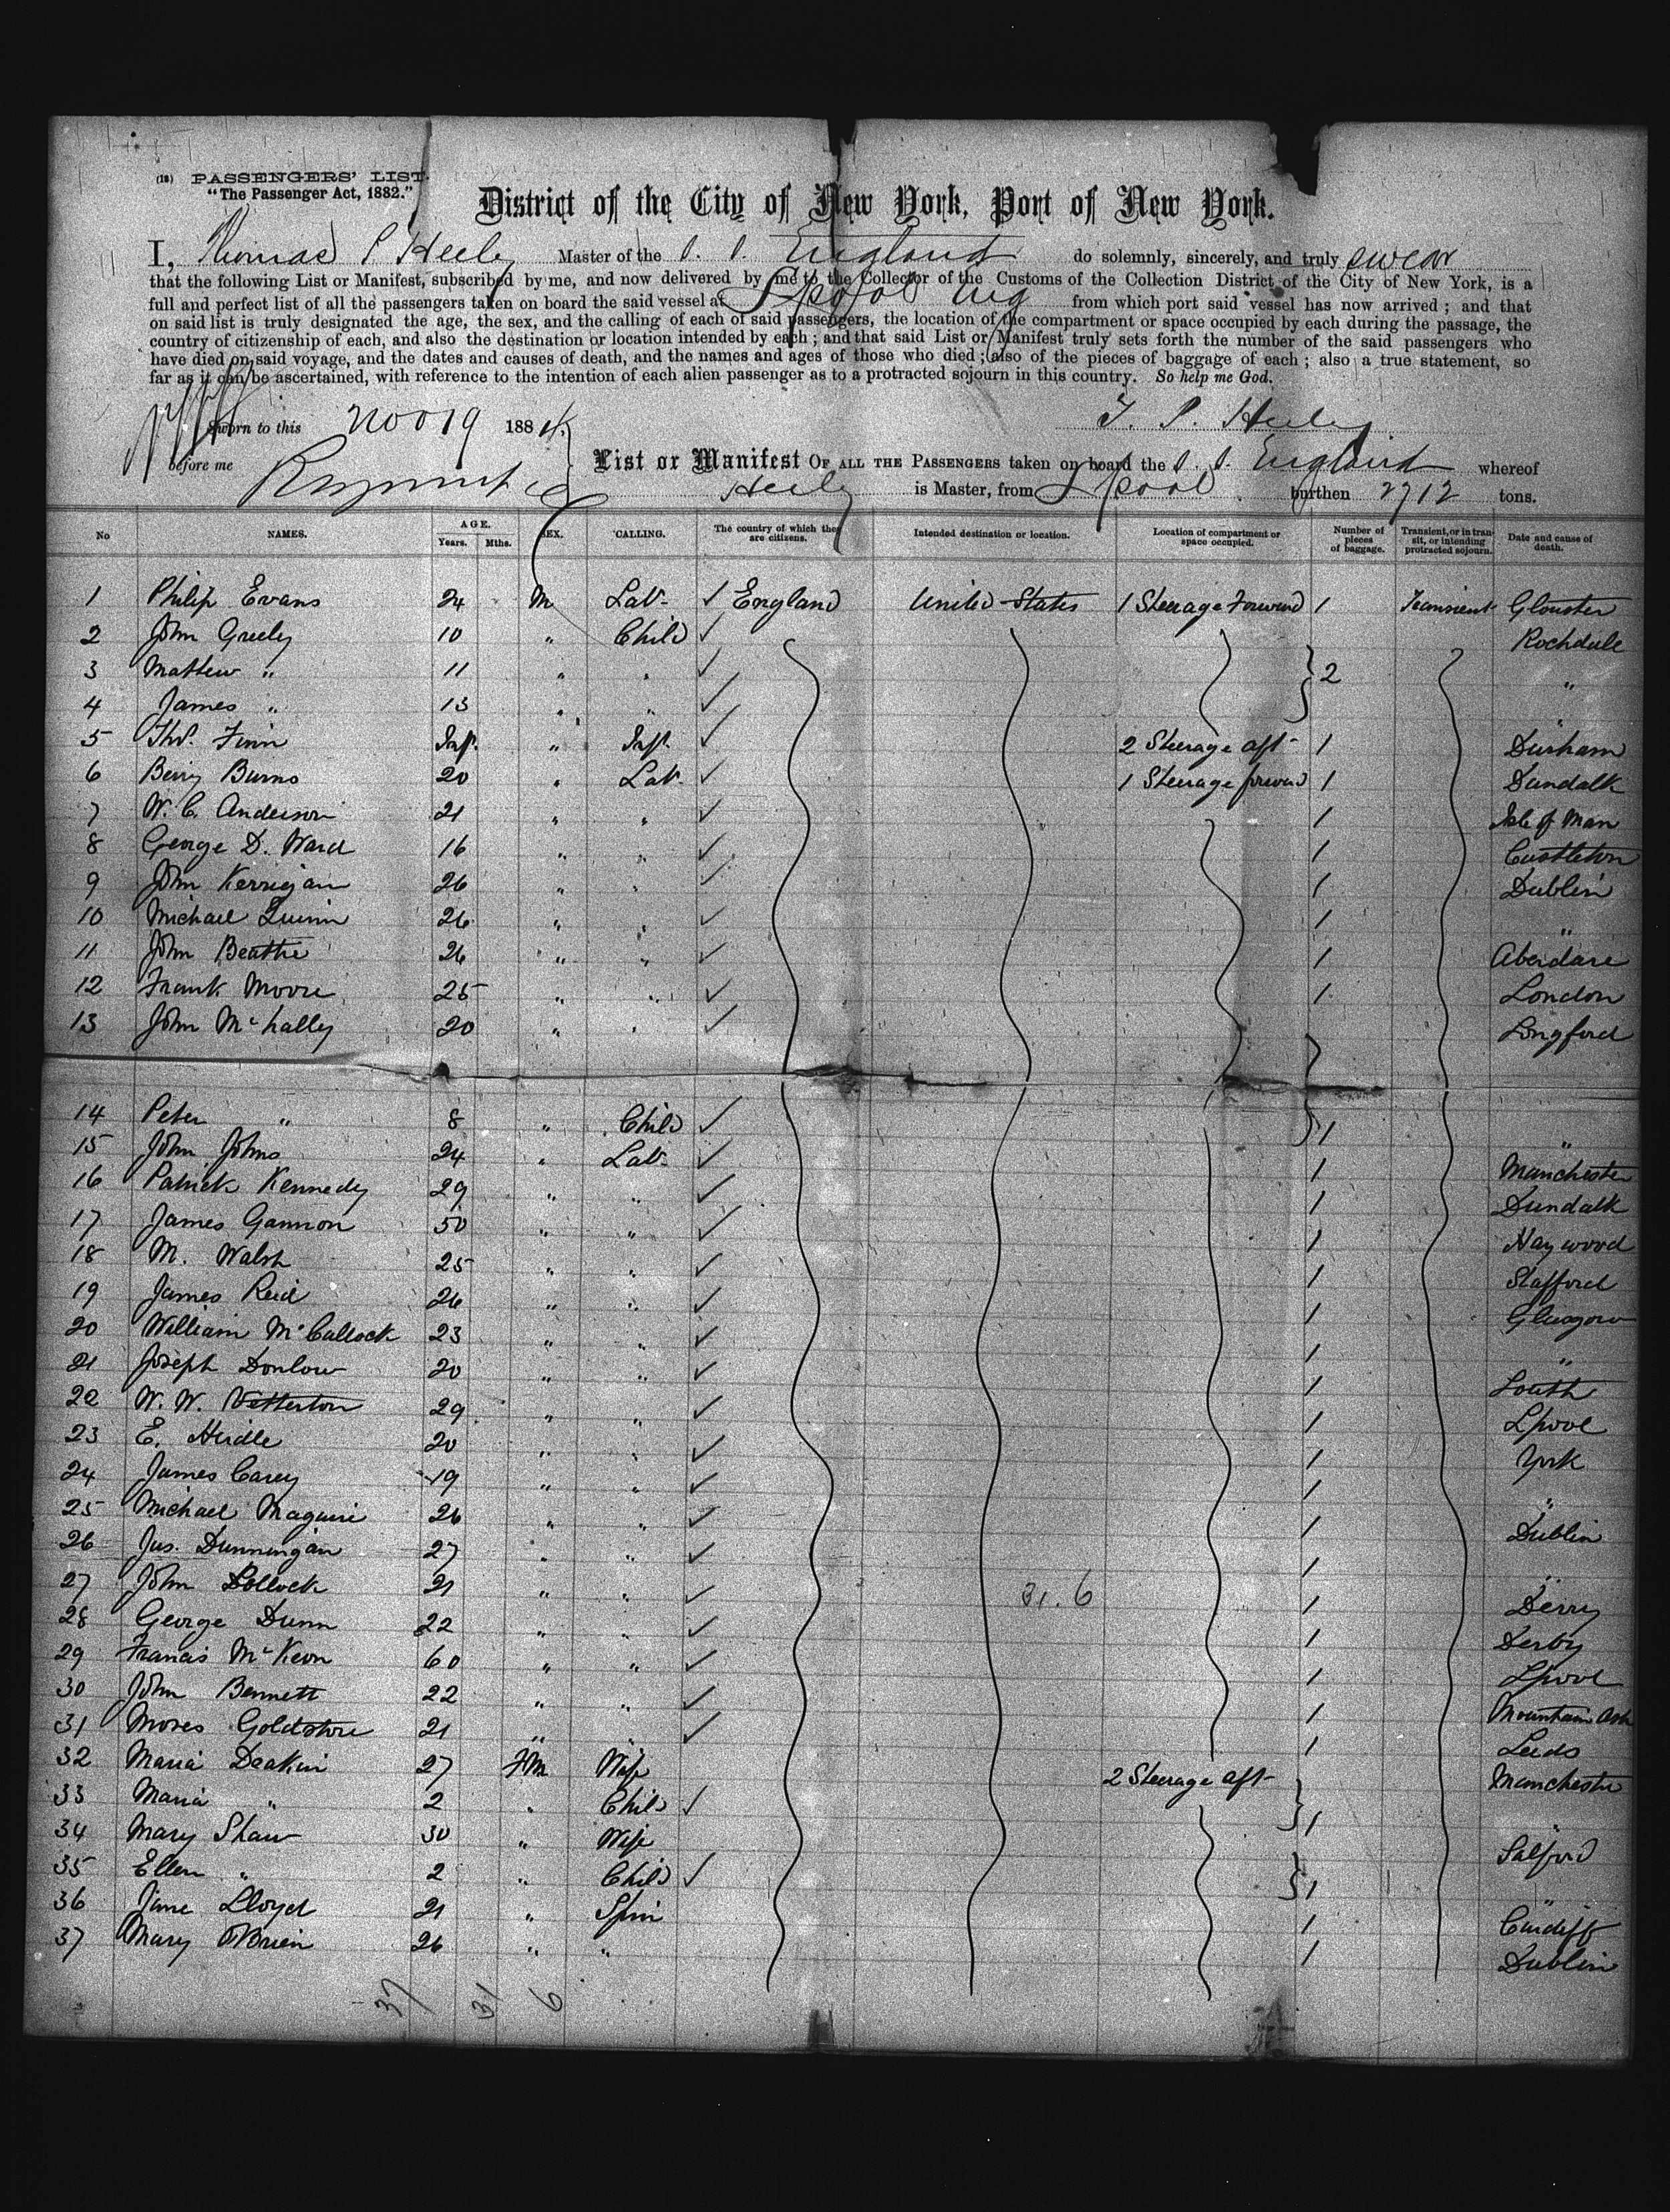 (18) PASSENGERS' LIST.
"The Passenger Act, 1882."
District of the City of New York, Port of New York.
I, Thomas P Heeley Master of the S. S. England do solemnly, sincerely, and truly swear
that the following List or Manifest, subscribed by me, and now delivered by me to the Collector of the Customs of the Collection District of the City of New York, is a
full and perfect list of all the passengers taken on board the said vessel at Lpool from which port said vessel has now arrived ; and that
on said list is truly designated the age, the sex, and the calling of each of said passengers, the location of the compartment or space occupied by each during the passage, the
country of citizenship of each, and also the destination or location intended by each ; and that said List or Manifest truly sets forth the number of the said passengers who
have died on said voyage, and the dates and causes of death, and the names and ages of those who died ; also of the pieces of baggage of each ; also a true statement, so
far as it can be ascertained, with reference to the intention of each alien passenger as to a protracted sojourn in this country. So help me God.
Sworn to this Nov 19 1884 T. P. Heeley
before me
List or Manifest OF ALL THE PASSENGERS taken on board the S. S. England whereof
Heeley is Master, from Lpool burthen 2712 tons.
No NAMES. AGE. Years. Mths. SEX. CALLING. The country of which they are citizens. Intended destination or location. Location of compartment or space occupied. Number of pieces of baggage. Transient, or in transit, or intending protracted sojourn. Date and cause of death.
1 Philip Evans 24 M Lab. ✓ England United States 1 Steerage Forward 1 Transient Glouster
2 John Greely 10 " Child ✓ Rochdale
3 Mathew " 11 " " ✓ 2 "
4 James " 13 " " ✓ "
5 Thos. Finn Inf. " Inft. ✓ 2 Steerage aft 1 Durham
6 Berry Burns 20 " Lab. ✓ 1 Steerage forward 1 Dundalk
7 W. C. Anderson 21 " " ✓ 1 Isle of Man
8 George D. Ward 16 " " ✓ 1 Castleton
9 John Kerrigan 26 " " ✓ 1 Dublin
10 Michael Quinn 26 " " ✓ 1 "
11 John Beattie 26 " " ✓ 1 Aberdare
12 Frank Moore 25 " " ✓ 1 London
13 John McNally 20 " " ✓ Longford
14 Peter " 8 " Child ✓ 1 "
15 John Johns 24 " Lab. ✓ 1 Manchester
16 Patrick Kennedy 29 " " ✓ 1 Dundalk
17 James Gannon 50 " " ✓ 1 Haywood
18 M. Walsh 25 " " ✓ 1 Stafford
19 James Reid 26 " " ✓ 1 Glasgow
20 William McCullock 23 " " ✓ 1 "
21 Joseph Donlow 20 " " ✓ 1 Louth
22 W. W. 29 " " ✓ 1 Lpool
23 E. Hirdle 20 " " ✓ 1 York
24 James Carey 19 " " ✓ 1 "
25 Michael Maguire 26 " " ✓ 1 Dublin
26 Jas. Dunningan 27 " " ✓ 1 "
27 John 21 " " ✓ 31. 6 1 Derry
28 George Dunn 22 " " ✓ 1 Derby
29 Francis McKeon 60 " " ✓ 1 Lpool
30 John Bennett 22 " " ✓ 1 Mountain Ash
31 Moses Goldstone 21 " " ✓ 1 Leeds
32 Maria Deakin 27 FM Wife 2 Steerage aft Manchester
33 Maria " 2 " Child ✓ 1 "
34 Mary Shaw 30 " Wife Salford
35 Ellen " 2 " Child ✓ 1 "
36 Jane Lloyd 21 " Spin 1 Cardiff
37 Mary O'Brien 26 " " 1 Dublin
37 31 6